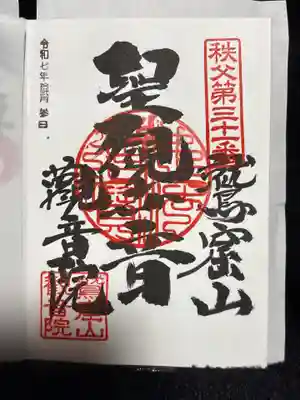 秩父第三十一番
鷲窟山
聖観世音
觀音院
鷲窟山
観音院
令和七年 参日